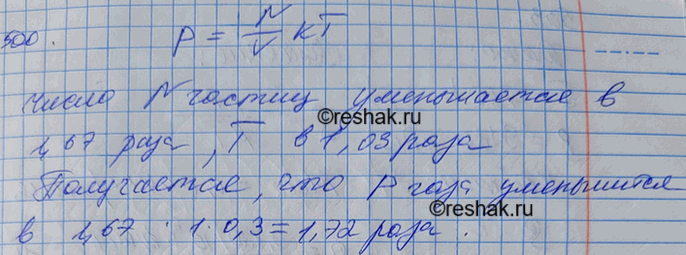 500. P = N/V kT
число N частиц уменьшается в
1,67 раза, T в 1,03 раза
©reshak.ru
Получается, что P газа уменьшится
©reshak.ru
в 1,67 · 1·0,3 = 1,72 раза.